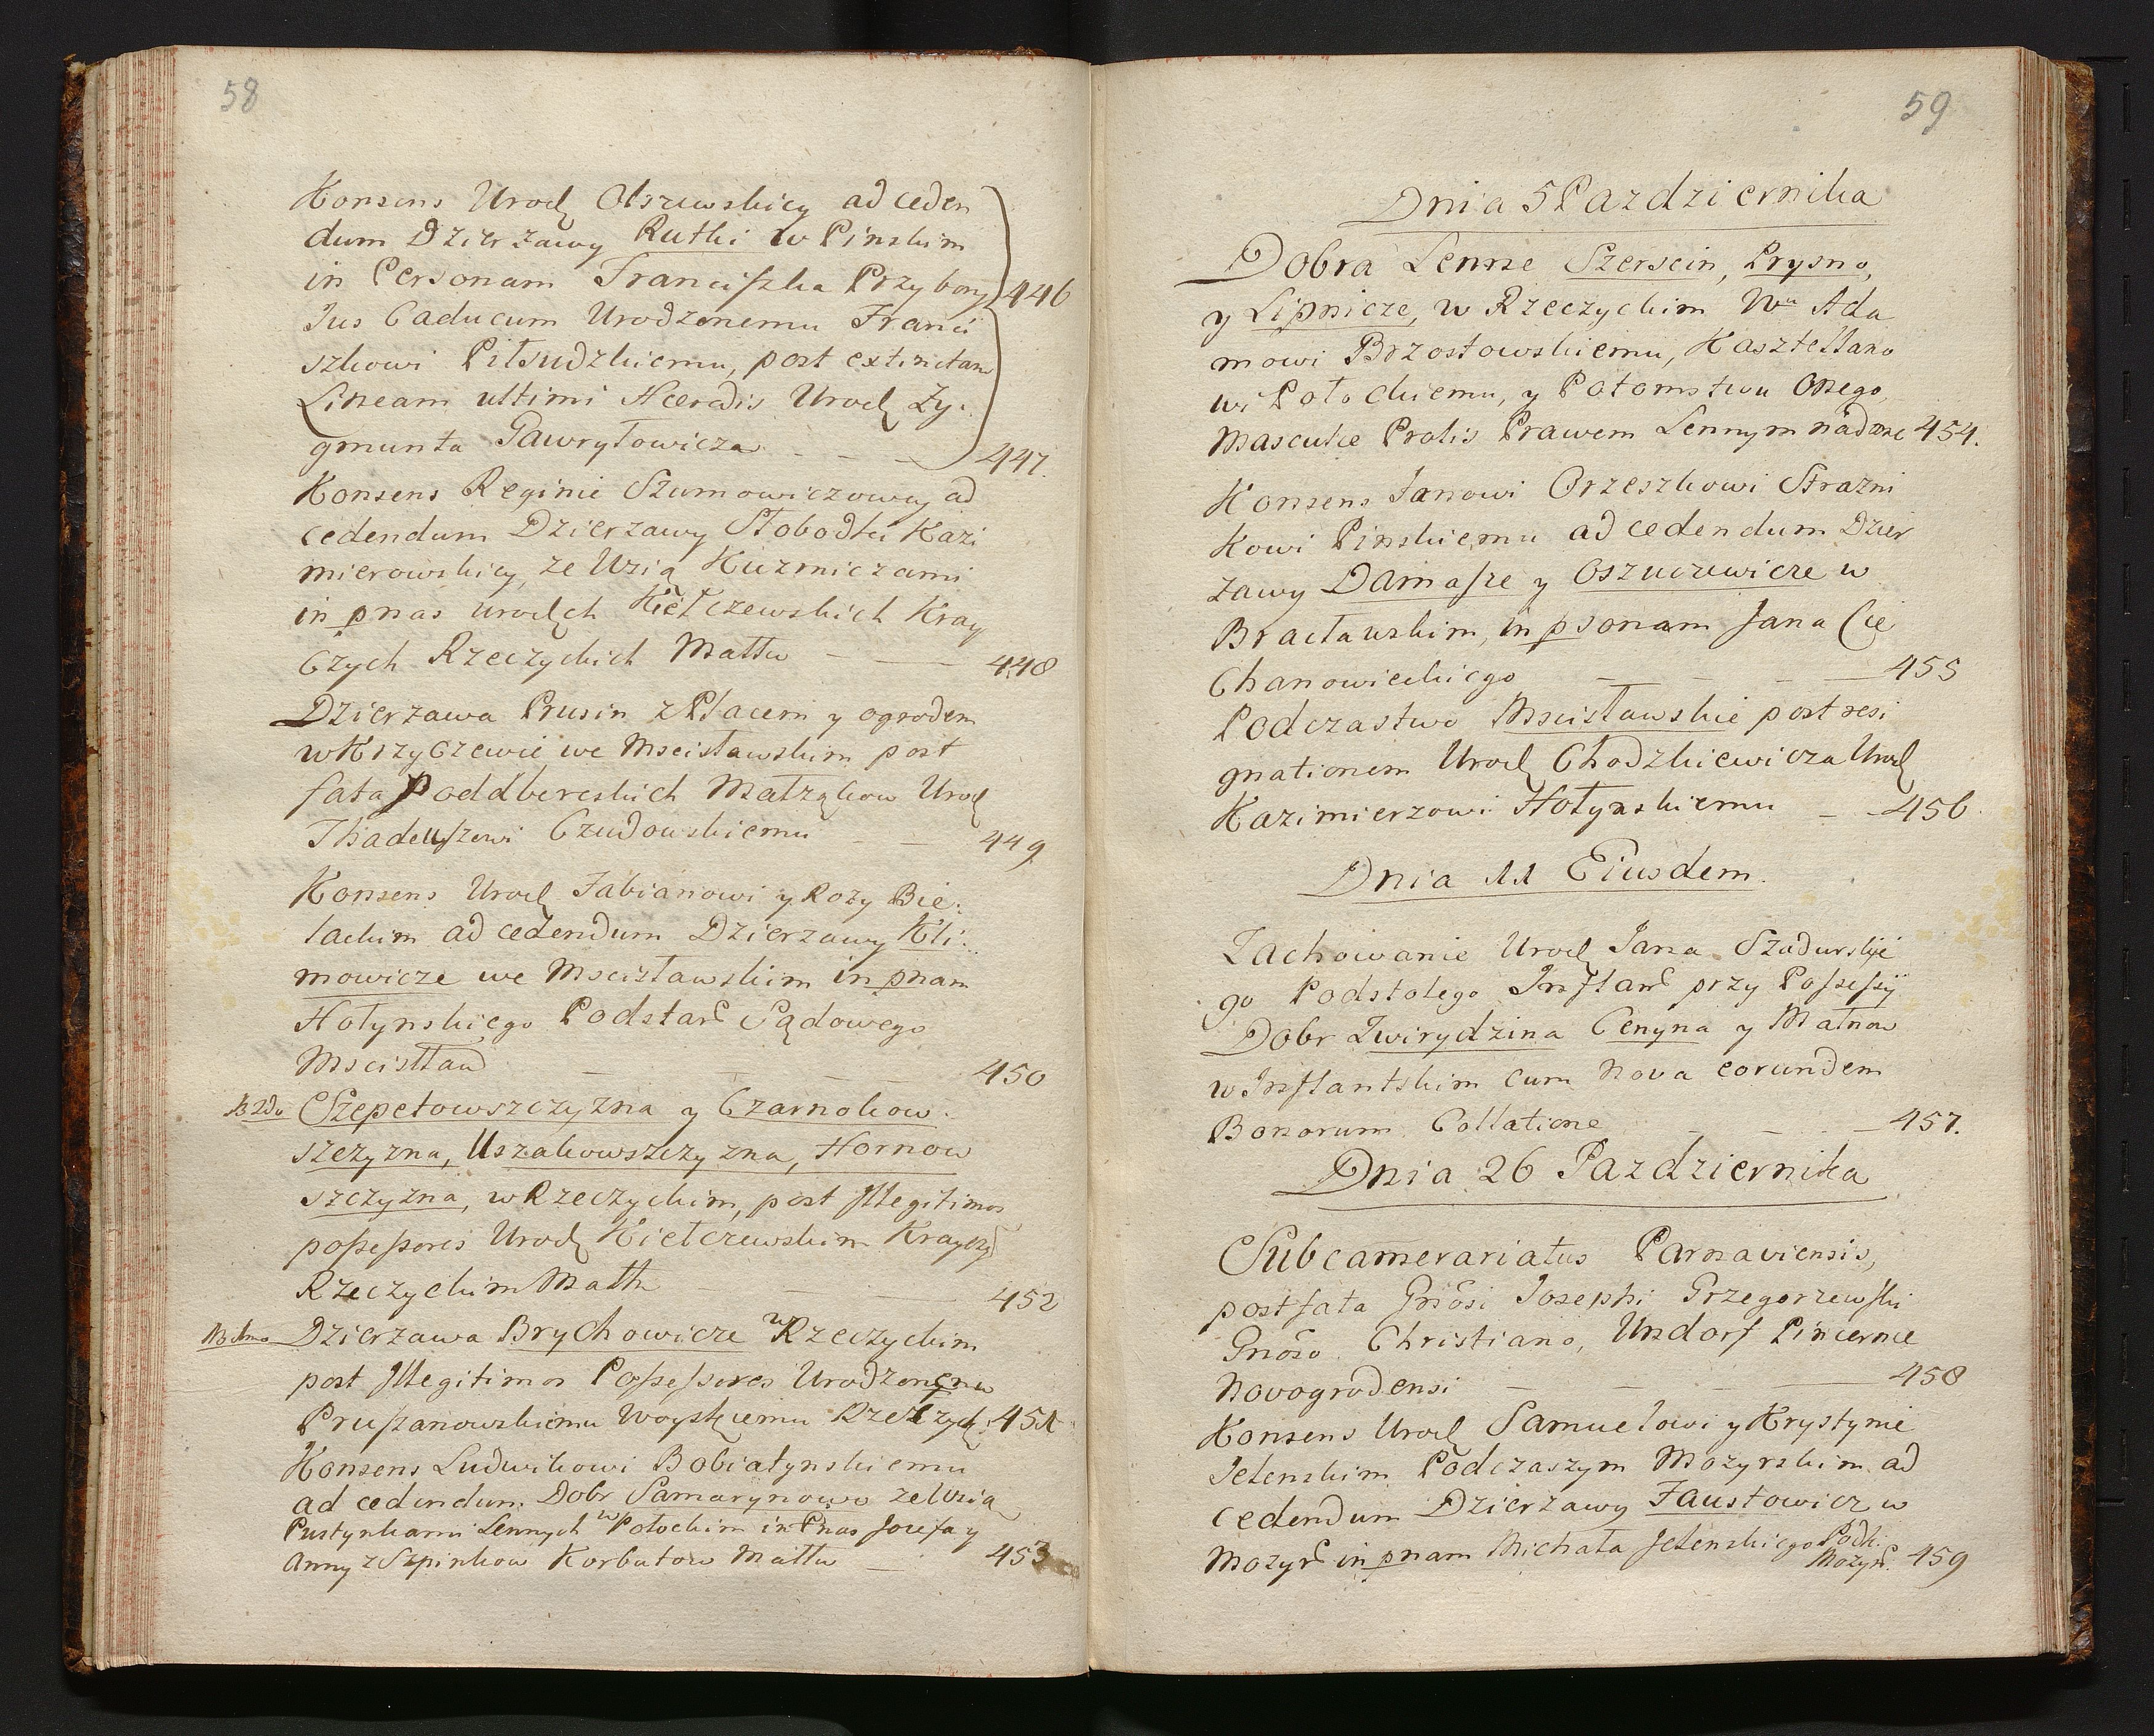 58
Konsens Urodz Olszewskiey ad ceden
dum Dzierzawy Rutki w Pinskim
in Personam Franciszka Przybory 446
Jus Caducum Urodzonemu Franci
szkowi Piłsudzkiemu, post extinctam
Lineam ultimi Haeredis Urodz Zy:
gmunta Gawryłowicza - - - 447.
Konsens Reginie Szumowiczowey ad
cedendum Dzierzawy Słobodki Kazi
mierowskiey, ze Wsią Kuzmiczami
in pnas urodzch Kiełczewskich Kray
Czych Rzeczyckich Małłw - - 448
Dzierzawa Prusin z Placem y ogrodem
w Krzyczewie, we Mscisławskim post
fata Poddbereskich Małząkow Urodz
Thadeuszowi Czudowskiemu - - 449
Konsens Urodz Fabianowi y Rozy Bie:
lackim ad cedendum Dzierzawy Kli:
mowicze we Mscisławskim in pnam
Hołynskiego Podstar Sądowego
Mscisław - - - 450
NB 2do Szepetowszczyzna y Czarnokow.
szczyzna, Uszakowszczyzna, Hornow
szczyzna, w Rzeczyckim, post Illegitimos
possessores Urodz Kiełczewskim Krayczy
Rzeczyckim Małł 452
NB 1mo Dzierzawa Brychowicze w Rzeczyckim
post Illegitimos Possessores Urodzonemu
Pruszanowskiemu Woyskiemu Rzeczyck: 451
Konsens Ludwikowi Bobiatynskiemu
ad cedendum Dobr Samarynowo ze Wsią
Pustynkami Lennych w Połockim in Pnas Jozefa y
Anny z Szpinkow Korbutow Małłw - 453
59
Dnia 5 Pazdziernika
Dobra Lenne Szerscin, Prysno,
y Lipnicze, w Rzeczyckim Wu Ada
mowi Brzostowskiemu, Kasztellano
wi Połockiemu, y Potomstwu Onego,
Masculae Prolis Prawem Lennym nadane 454.
Konsens Janowi Orzeszkowi Strazni
Kowi Pinskiemu ad cedendum Dzier
zawy Damasze y Oszuczewicze w
Bracławskim, in psonam Jana Cie
Chanowieckiego - - - 455
Podczastwo Mscisławskie post resi
gnationem Urodz Chodzkiewicza Urodz
Kazimierzowi Hołynskiemu - - 456
Dnia 11 Eiusdem.
Zachowanie Urodz Jana Szadurskie
go Podstolego Inflan przy Possessyi
Dobr Zwirydzina Cenyna y Małnow
w Inflantskim cum Nova eorundem
Bonorum Collatione - - - 457.
Dnia 26 Pazdziernika
Subcamerariatus Parnaviensis,
post fata Gnosi Josephi Grzegorzewski
Gnoso Christiano, Undorf Pincernae
Novogrodensi - - - 458
Konsens Urodz Samuelowi y Krystynie
Jelenskim Podczaszym Mozyrskim ad
cedendum Dzierzawy Faustowicz w
Mozyr in pnam Michała Jelenskiego Podk:
Mozyr. 459